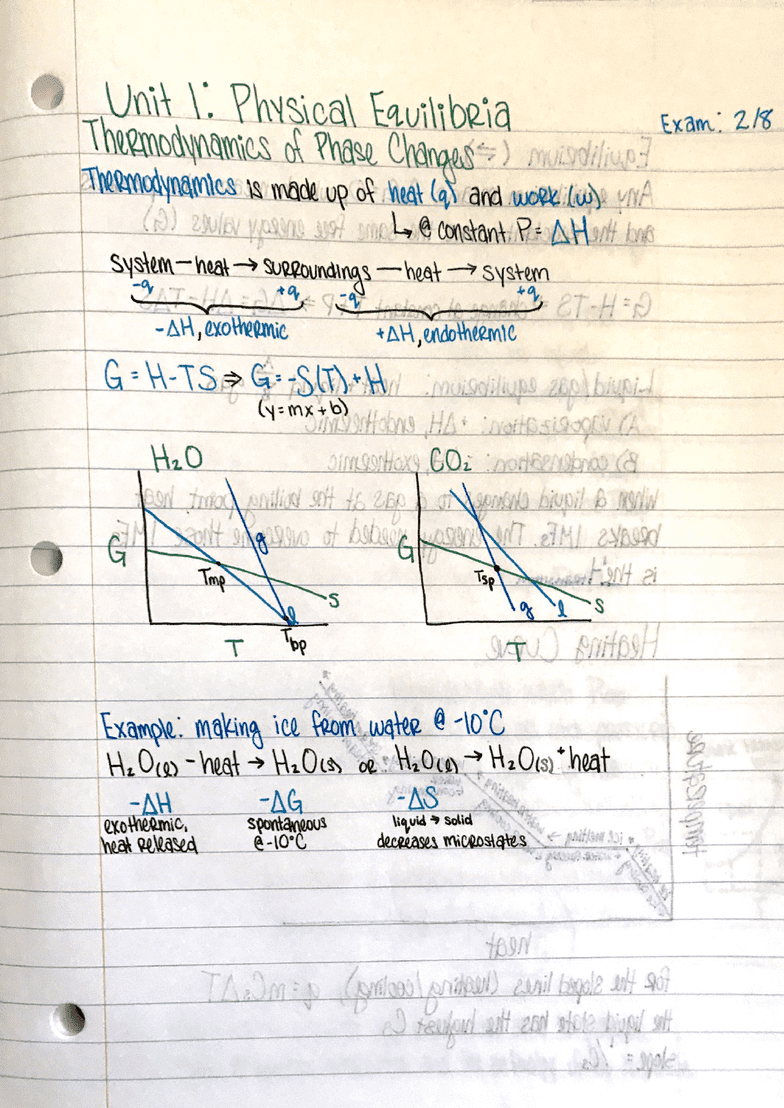 Unit 1: Physical Equilibria
Exam: 2/8
Thermodynamics of Phase Changes
Thermodynamics is made up of heat (q) and work (w)
↳ @ constant P = ΔH
system — heat → surroundings — heat → system
-q +q -q +q
-ΔH, exothermic +ΔH, endothermic
G = H-TS ⇒ G = -S(T) + H
(y=mx+b)
H₂O CO₂
G g Tmp s l Tbp T
G Tsp g l s T
Example: making ice from water @ -10°C
H₂O(l) - heat → H₂O(s) or H₂O(l) → H₂O(s) + heat
-ΔH -ΔG -ΔS
exothermic, spontaneous liquid → solid
heat released @ -10°C decreases microstates